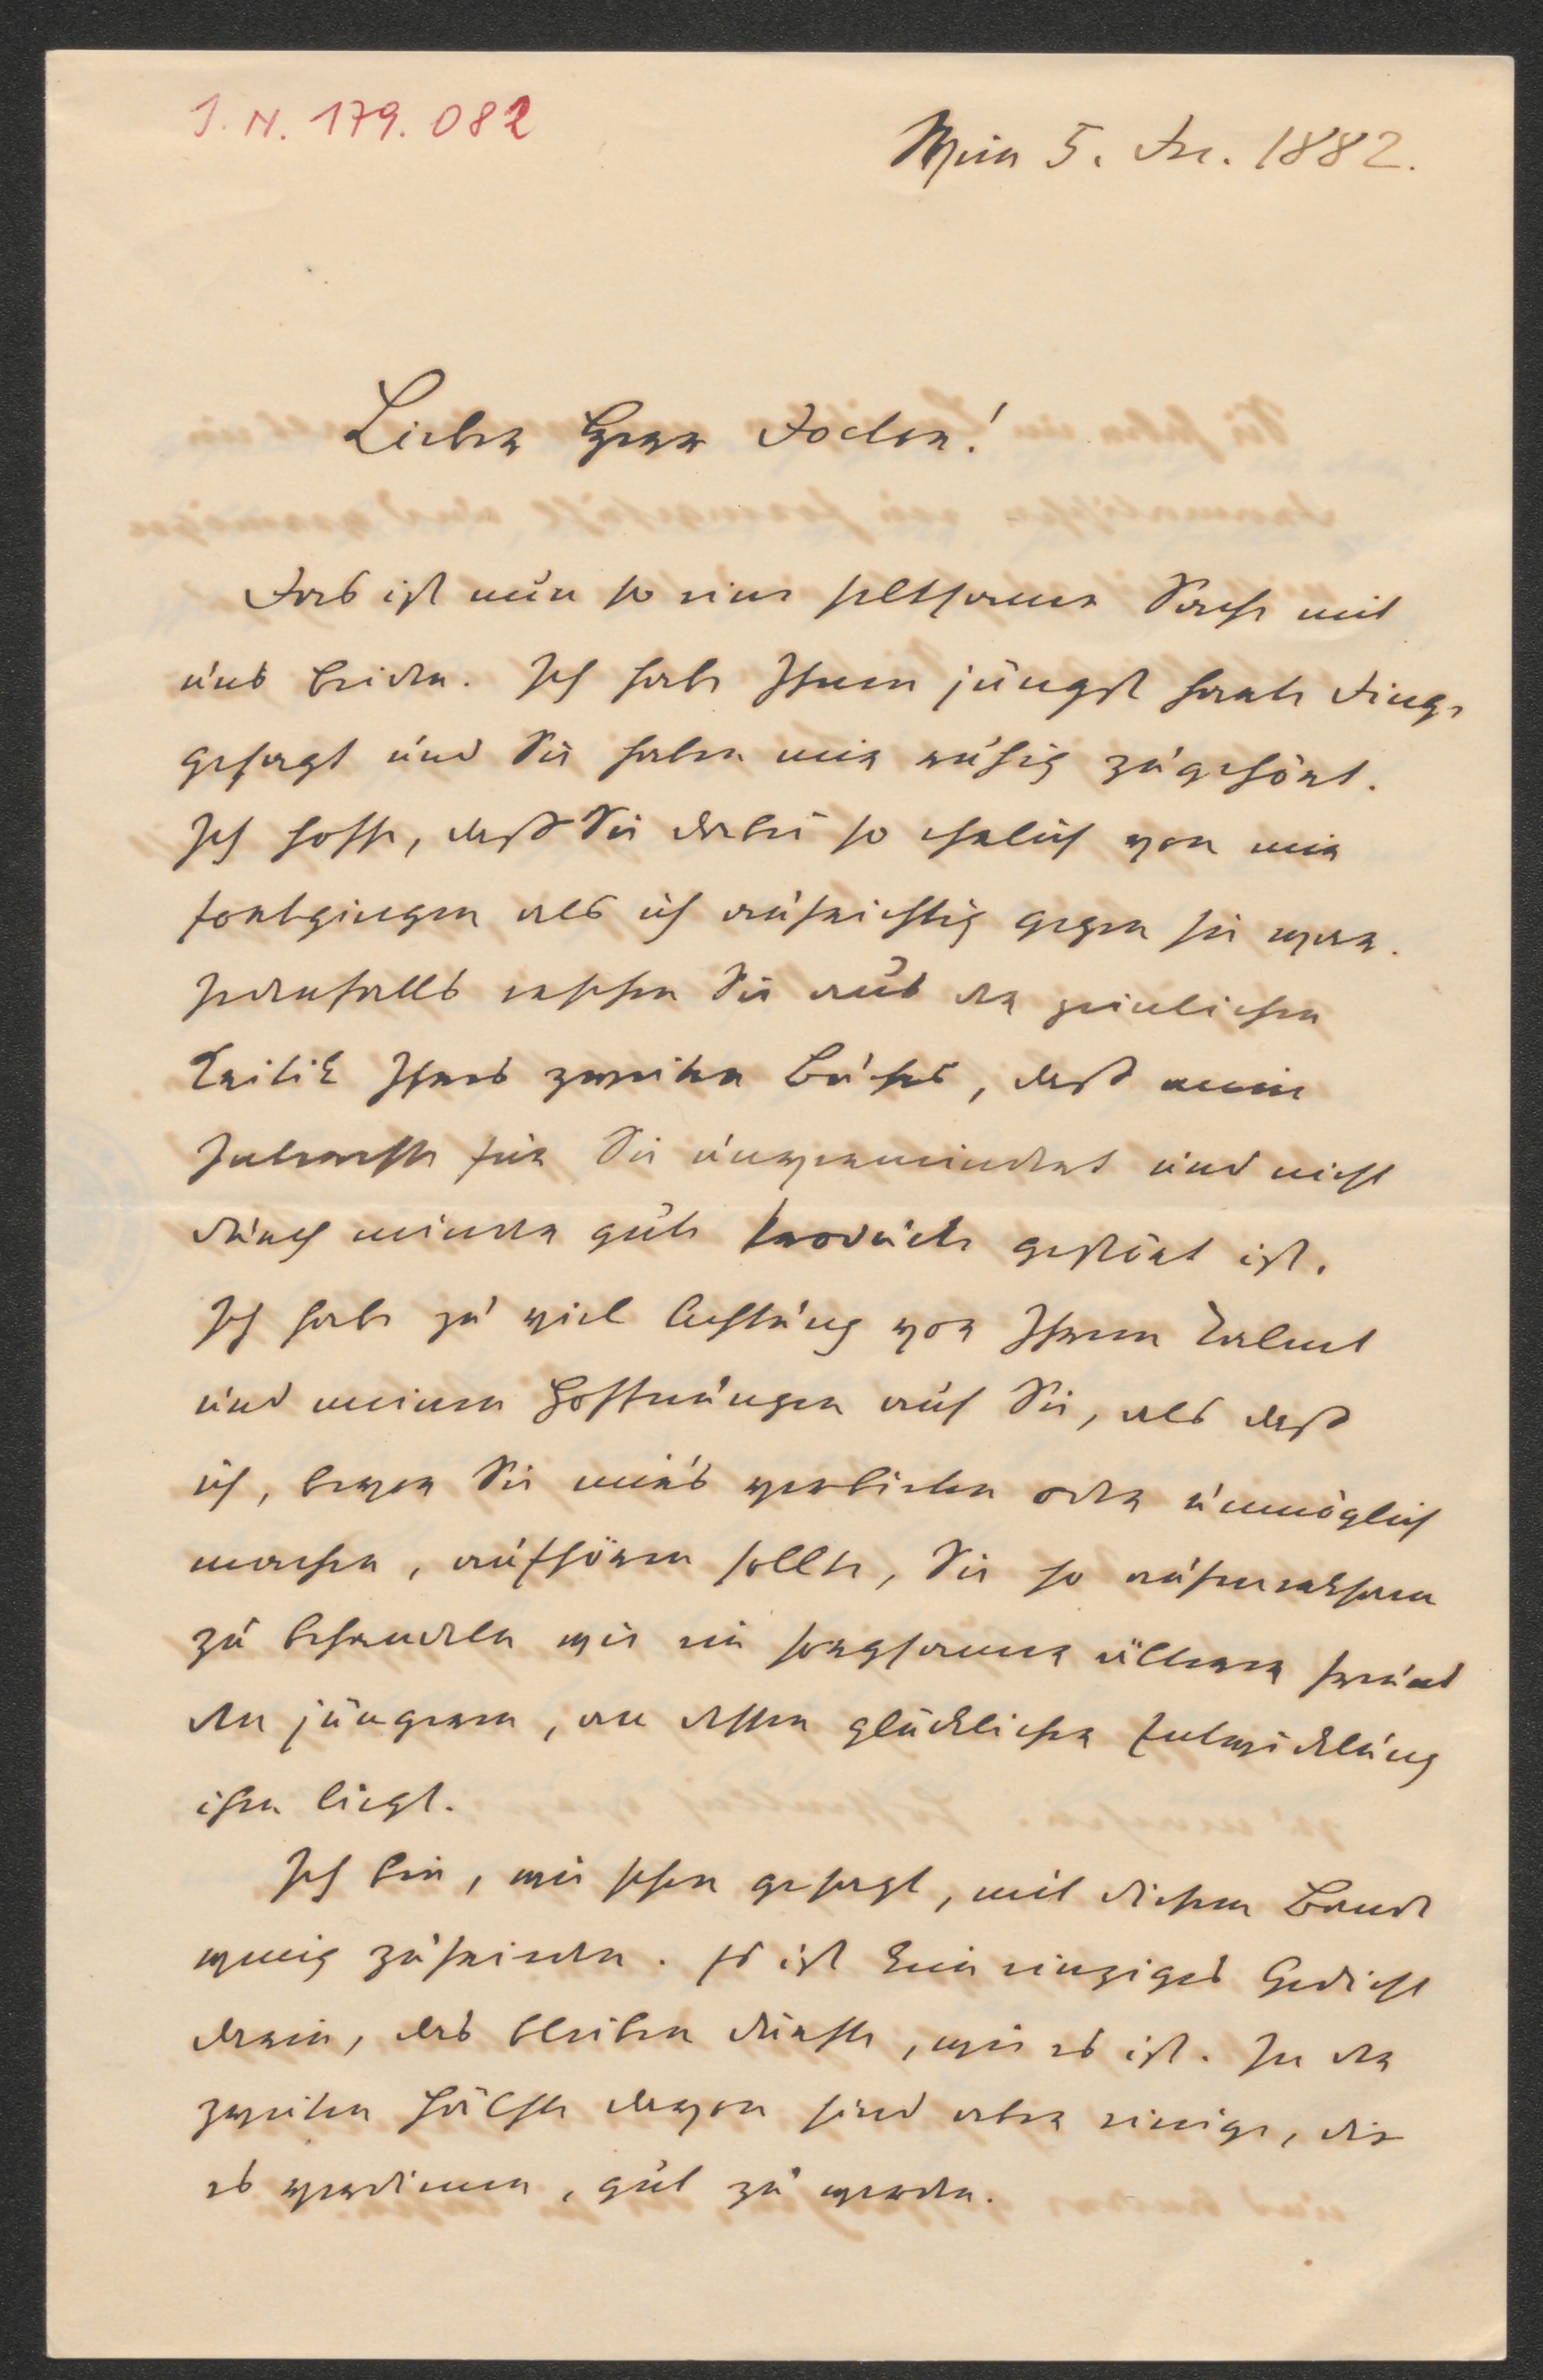 J. N. 179.082
Wien 5. Dec. 1882.
Lieber Herr Doctor!
Das ist nun so eine seltsame Sache mit
uns beiden. Ich habe Ihnen jüngst harte Dinge
gesagt und Sie haben mir ruhig zugehört.
Ich hoffe, daß Sie dabei so ehrlich von mir
fortgingen als ich aufrichtig gegen sie war.
Jedenfalls ersehen Sie aus der peinlichen
Kritik Ihres zweiten Buches, daß mein
Interesse für Sie unvermindert und nicht
durch minder gute Producte gestört ist.
Ich habe zu viel Achtung vor Ihrem Talent
und meinen Hoffnungen auf Sie, als daß
ich, bevor Sie mir's verbieten oder unmöglich
machen, aufhören sollte, Sie so aufmerksam
zu behandeln wie ein sorgsamer älterer Freund
den jüngeren, an dessen glücklicher Entwicklung
ihm liegt.
Ich bin, wie schon gesagt, mit diesem Bande
wenig zufrieden. Es ist kein einziges Gedicht
darin, das bleiben dürfte, wie es ist. In der
zweiten Hälfte davon sind aber einige, die
es verdienen, gut zu werden.